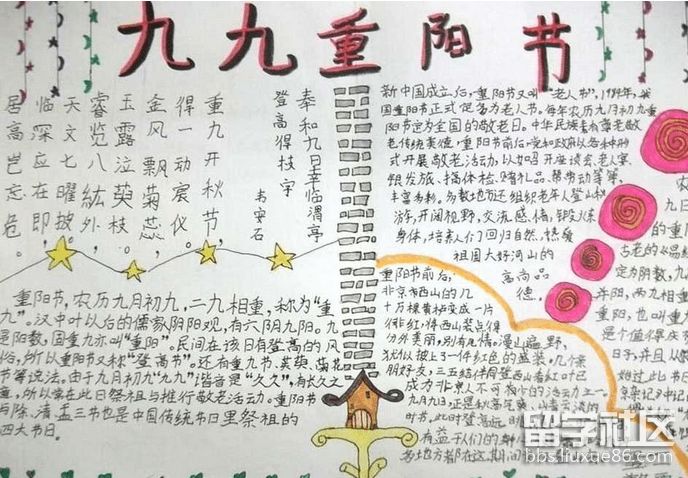 九九重阳节
奉和九日幸临渭亭
登高得枝字
韦安石
重九开秋节，
得一动宸仪。
金风飘菊蕊，
玉露泣萸枝。
睿览八紘外，
天文七曜披。
临深应在即，
居高岂忘危。
重阳节，农历九月初九，二九相重，称为"重
九"。汉中叶以后的儒家阴阳观，有六阴九阳。九
是阳数，固重九亦叫"重阳"。民间在该日有登高的风
俗，所以重阳节又称"登高节"。还有重九节、茱萸、菊花
节等说法。由于九月初九"九九"谐音是"久久"，有长久之
意，所以常在此日祭祖与推行敬老活动。重阳节
与除、清、盂三节也是中国传统节日里祭祖的
四大节日。
新中国成立后，重阳节又叫"老人节"。1989年，我
国重阳节正式定为老人节。每年农历九月初九重
阳节定为全国的敬老日。中华民族素有尊老敬
老传统美德，重阳节前后，党和政府以各种形
式开展敬老活动，以如召开座谈会、老人宴、
银发旅、搞体检、赠礼品、帮带动等等，
丰富多彩。多数地方还组织老年人登山秋
游，开阔视野，交流感情，锻炼
身体，培养人们回归自然，热爱
祖国大好河山的
高尚品
德。
重阳节前后，
北京市西山的几
十万棵黄栌变成一片
绯红，将西山装点得
分外美丽，别有风情。漫山遍野
犹似披上了一件红色的盛装。几个亲
朋好友，三五结伴登西山看红叶已
成为北京人不可或少的活动之一。
九月九日，正是秋高气爽
时节。此时登高远
有益于人们的
各地方都在这期间
农
九日
的重阳
古老的《易经
定为阴数，九
丹阳，两九相重
重阳，也叫重
是个值得庆
留学社区
bbs.liuxue86.com